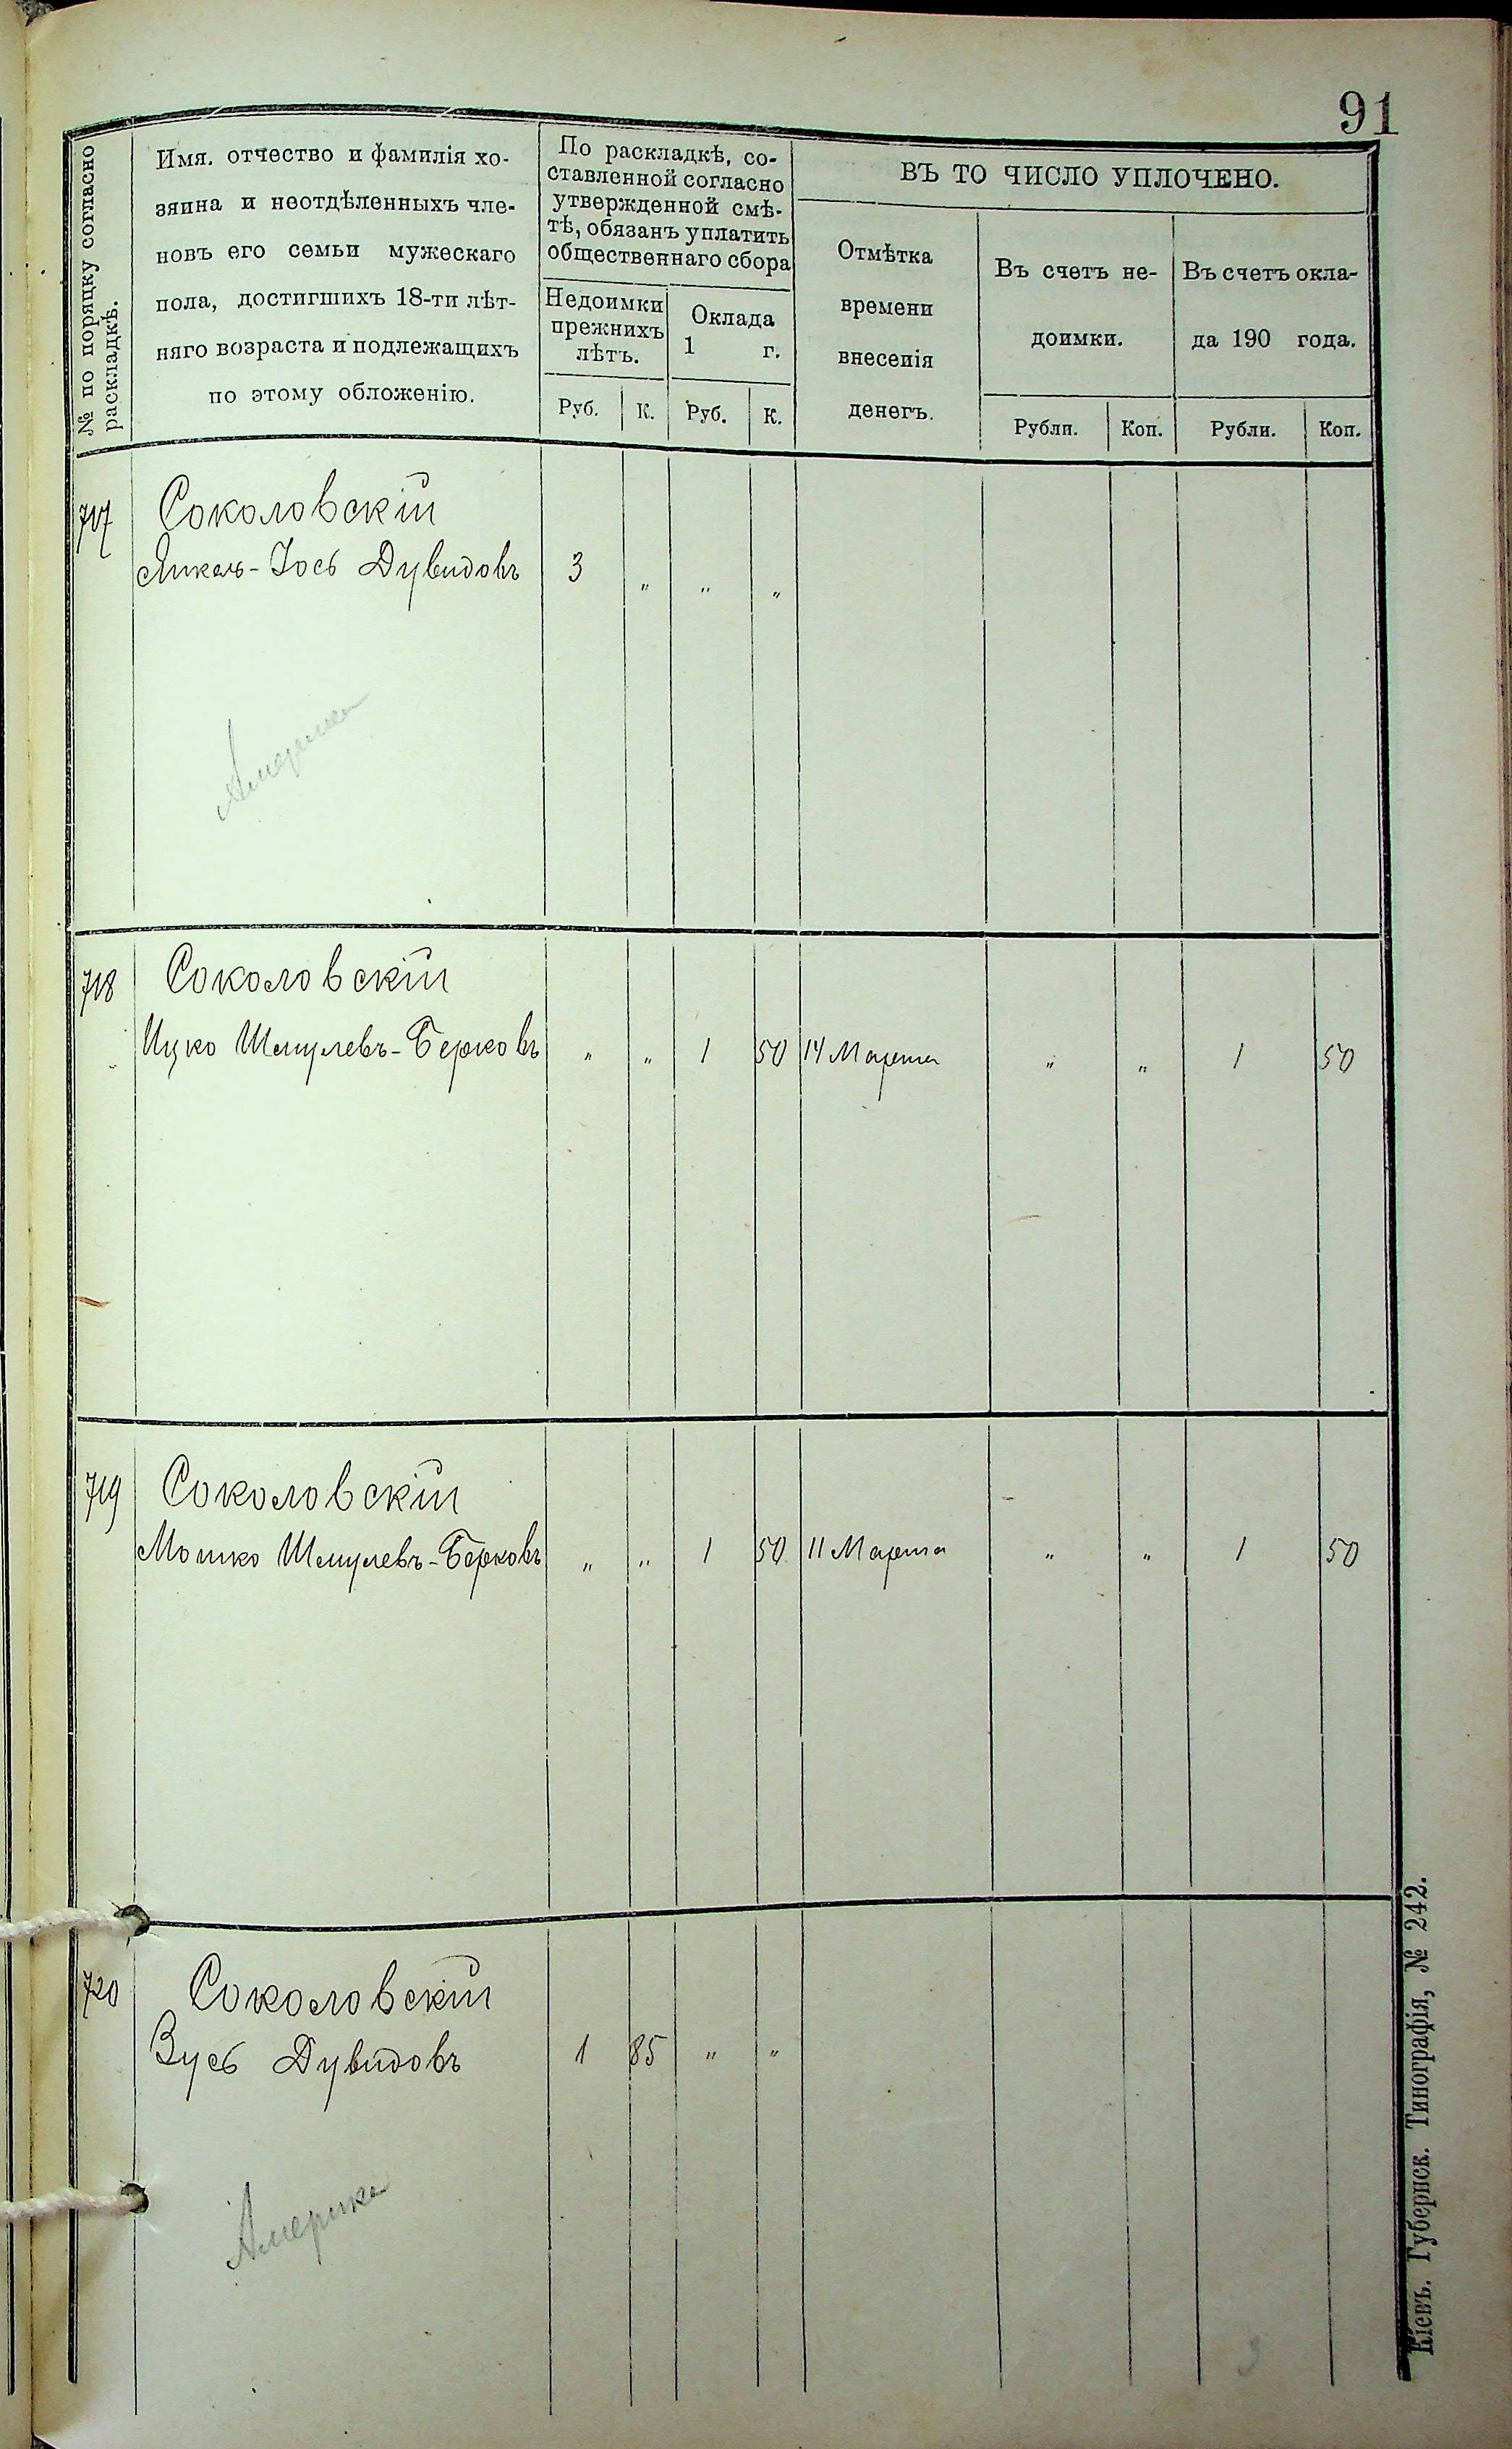 91
№ по поряцку согласно
раскладкѣ.
Имя. отчество и фамилія хо-
зяина и неотдѣленныхъ чле-
новъ его семьи мужескаго
пола, достигшихъ 18-ти лѣт-
няго возраста и подлежащихъ
по этому обложенію.
По раскладкѣ, со-
ставленной согласно
утвержденной смѣ-
тѣ, обязанъ уплатить
общественнаго сбора
Недоимки
прежнихъ
лѣтъ.
Оклада
1 г.
Руб. К. Руб. К.
ВЪ ТО ЧИСЛО УПЛОЧЕНО.
Отмѣтка
времени
внесенія
денегъ.
Въ счетъ не-
доимки.
Въ счетъ окла-
да 190 года.
Рубли. Коп. Рубли. Коп.
717 Соколовскій
Янкель-Іось Дувидовъ 3 „ „ „
Америка
718 Соколовскій
Ицко Шмулевъ-Берковъ „ „ 1 50 14 Марта „ „ 1 50
719 Соколовскій
Мошко Шмулевъ-Берковъ „ „ 1 50 11 Марта „ „ 1 50
720 Соколовскій
Зусь Дувидовъ 1 85 „ „
Америка
Кіевъ. Губернск. Типографія, № 242.